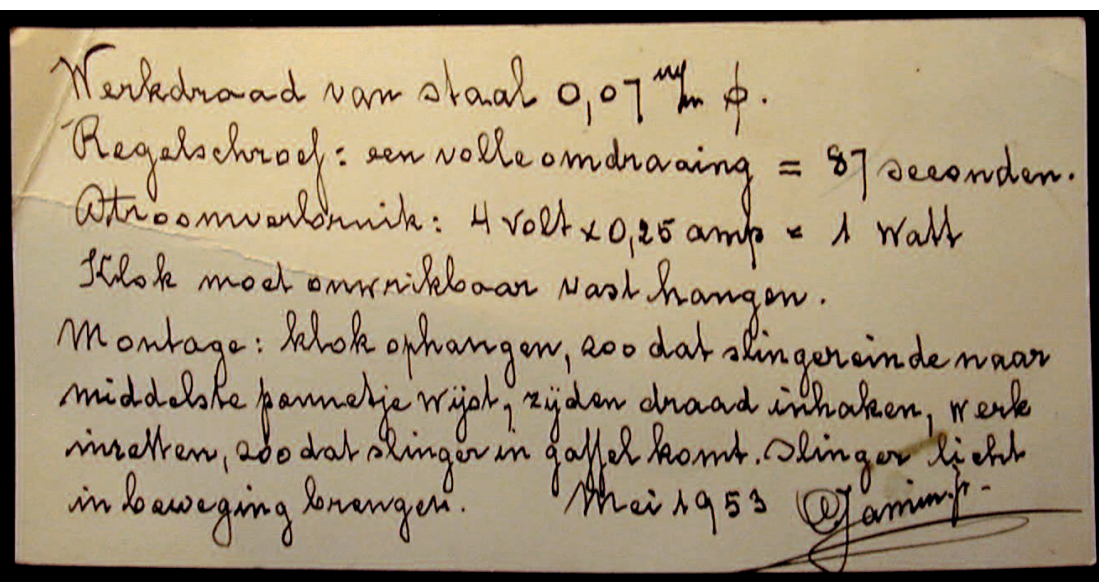 Werkdraad van staal 0,07 m/m ϕ.
Regelschroef: een volle omdraaing = 87 seconden.
Stroomverbruik: 4 volt x 0,25 amp = 1 Watt
Klok moet onwrikbaar vast hangen.
Montage: klok ophangen, zoo dat slingereinde naar
middelste pennetje wijst, zijden draad inhaken, werk
inzetten, zoo dat slinger in gaffel komt. Slinger licht
in beweging brengen. Mei 1953 Jamin. jr-